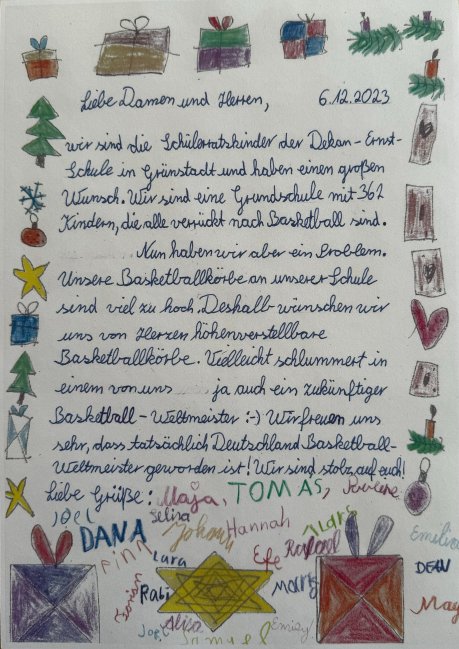 Liebe Damen und Herren, 6.12.2023
wir sind die Schülerratskinder der Dekan-Ernst-
Schule in Grünstadt und haben einen großen
Wunsch. Wir sind eine Grundschule mit 362
Kindern, die alle verrückt nach Basketball sind.
Nun haben wir aber ein Problem.
Unsere Basketballkörbe an unserer Schule
sind viel zu hoch. Deshalb wünschen wir
uns von Herzen höhenverstellbare
Basketballkörbe. Vielleicht schlummert in
einem von uns ja auch ein zukünftiger
Basketball-Weltmeister :-) Wir freuen uns
sehr, dass tatsächlich Deutschland Basketball-
Weltmeister geworden ist! Wir sind stolz auf euch!
Liebe Grüße: Maja, TOMAS,
Joel Selina Hannah Klara Emilia
DANA Johann
Finn Lara Efe Raphael DEAN
Rabi Mary May
Joel Alisa Samuel Emily